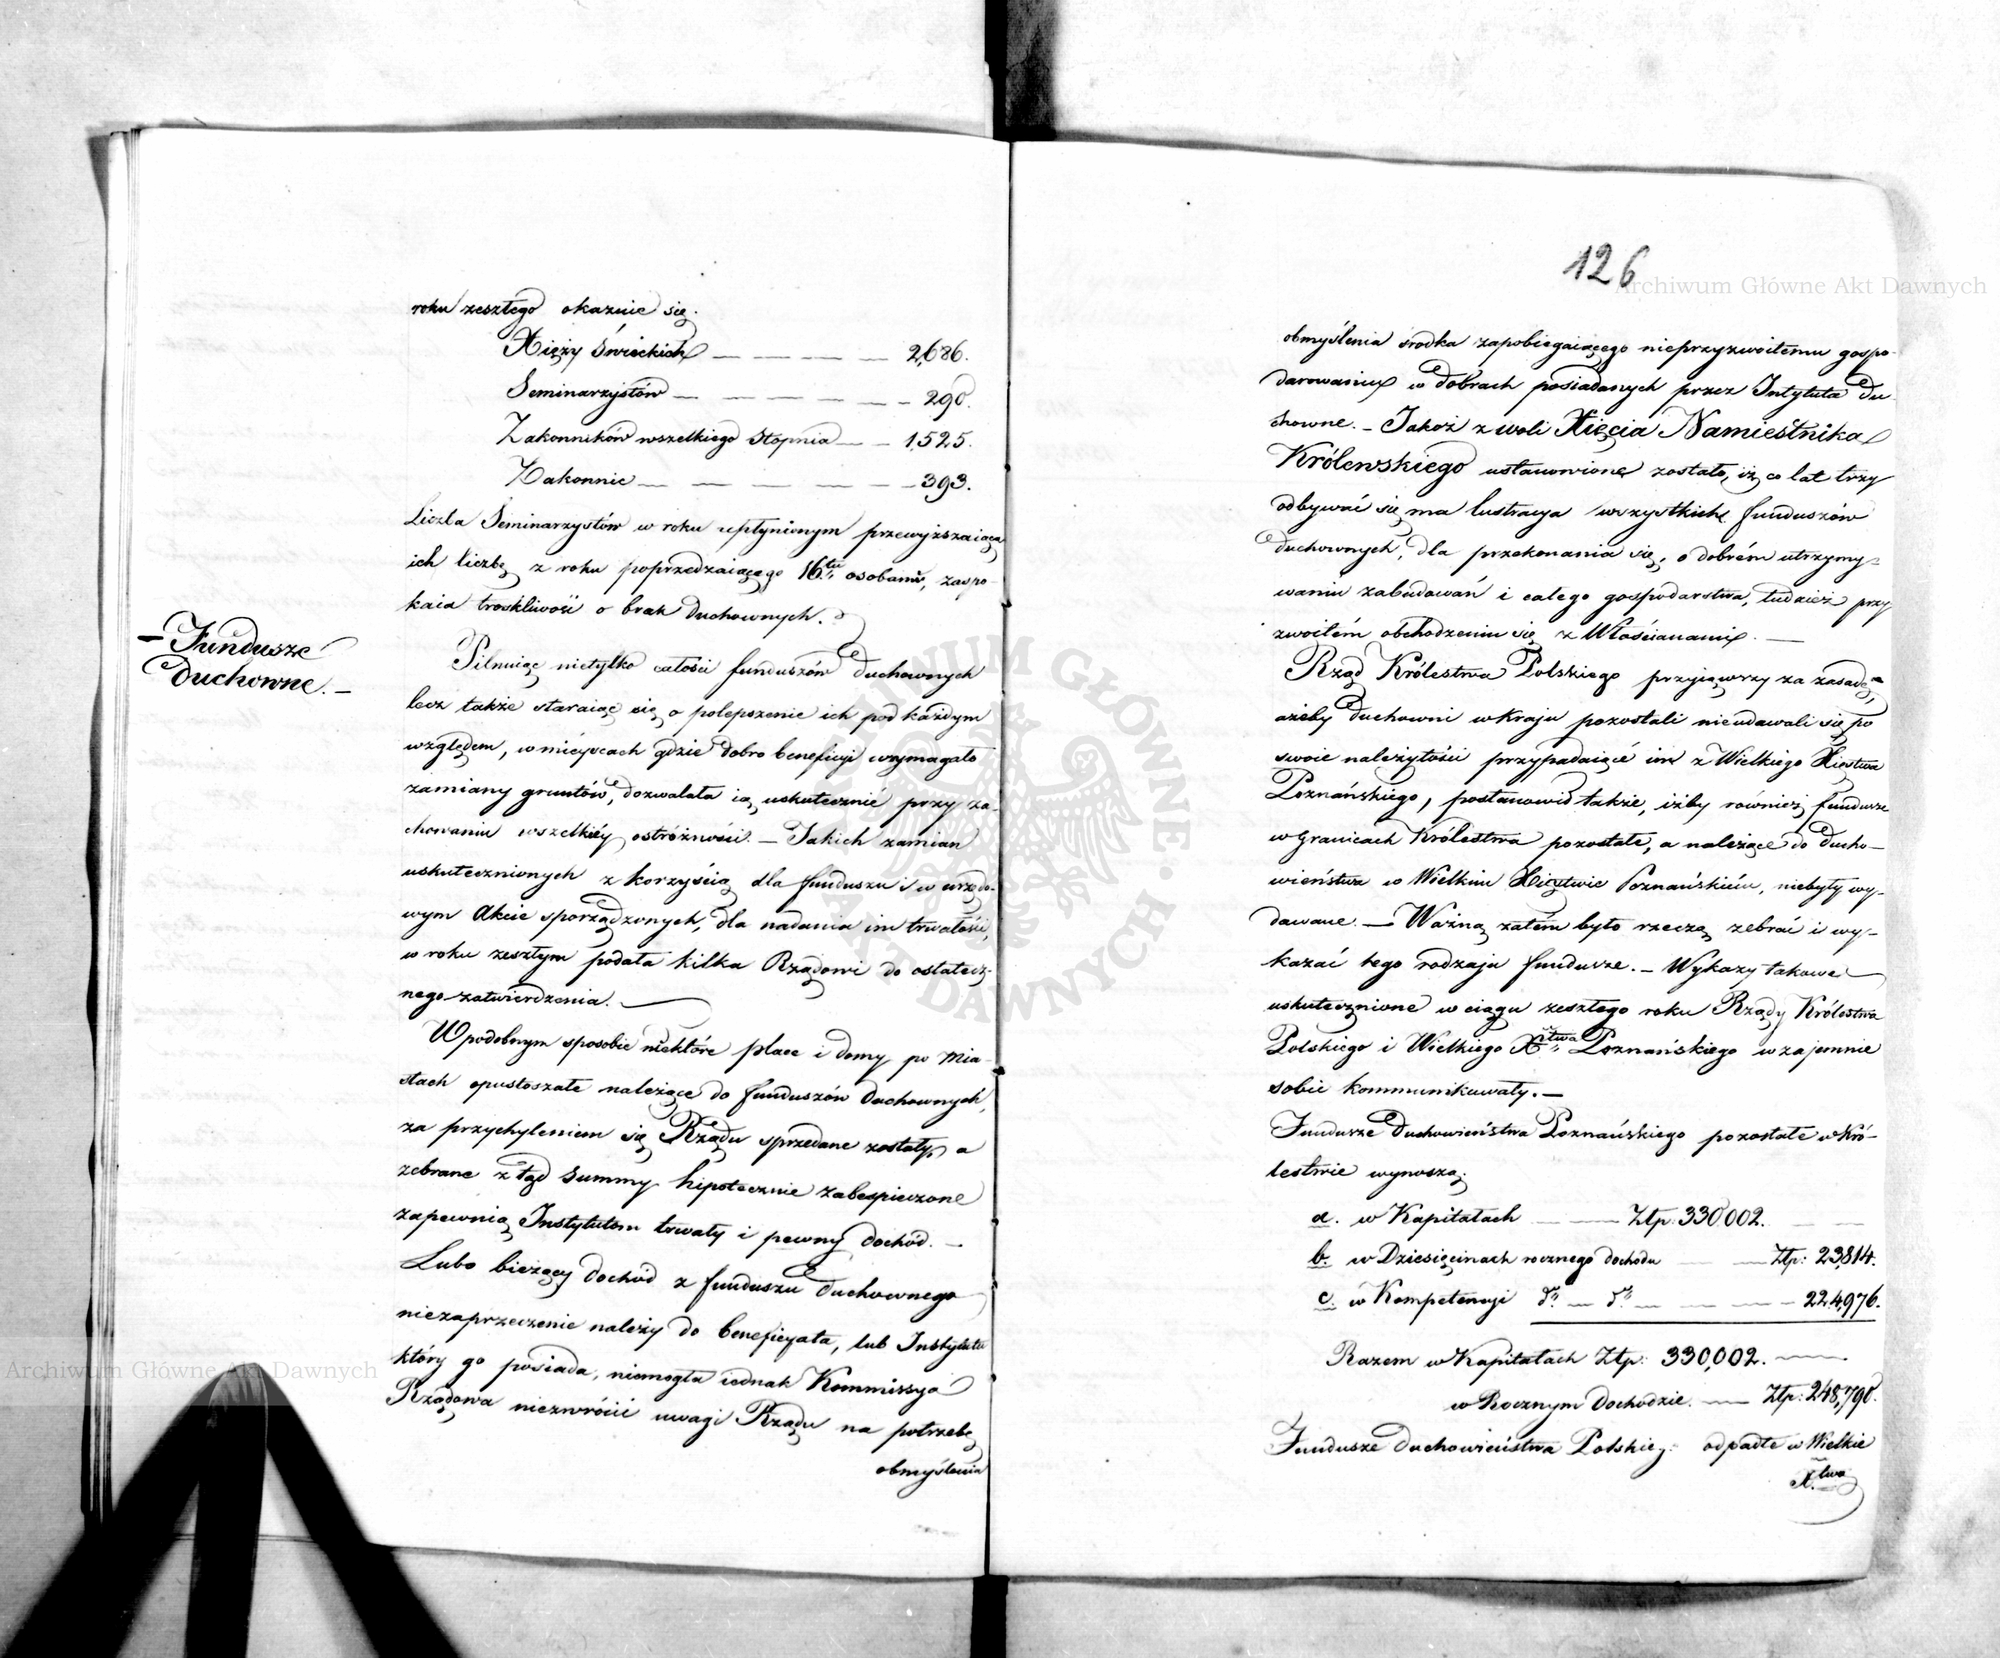 roku zeszłego okazuie się.
Xięży Świeckich — — — — — 2,686.
Seminarzystów — — — — — 290.
Zakonników wszelkiego Stopnia — — 1,525.
Zakonnic — — — — — 393.
Liczba Seminarzystów w roku upłynionym przewyższaiąca
ich liczbę z roku poprzedzaiącego 16tu osobami, zaspo-
kaia troskliwość o brak Duchownych.
— Fundusze
Duchowne. —
Pilnuiąc nietylko całości funduszów Duchownych
lecz także staraiąc się o polepszenie ich pod każdym
względem, w mieyscach gdzie dobro beneficyi wymagało
zamiany gruntów, dozwalała ią uskutecznić przy za-
chowaniu wszelkiéy ostróżności. — Takich zamian
uskutecznionych z korzyścią dla funduszu i w urzędo-
wym Akcie sporządzonych, dla nadania im trwałości,
w roku zeszłym podała kilka Rządowi do ostatecz-
nego zatwierdzenia. —
W podobnym sposobie niektóre place i domy po Mia-
stach opustoszałe należące do funduszów Duchownych,
za przychyleniem się Rządu sprzedane zostały, a
zebrane z tąd summy hipotecznie zabespieczone
zapewnią Instytutom trwały i pewny dochód. —
Lubo bieżący dochód z funduszu Duchownego
niezaprzeczenie należy do beneficyata, lub Instytutu
który go posiada, niemogła iednak Kommissya
Rządowa niezwrócić uwagi Rządu na potrzebę
obmyślenia
126
obmyślenia środka zapobiegaiącego nieprzyzwoitemu gospo-
darowaniu w dobrach posiadanych przez Intytuta Du-
chowne. — Jakoż z woli Xięcia Namiestnika
Królewskiego ustanowione zostało, iż co lat trzy
odbywać się ma lustracya wszystkich funduszów
Duchownych, dla przekonania się, o dobrém utrzymy-
waniu zabudowań i całego gospodarstwa, tudzież przy-
zwoitém obchodzeniu się z Włościanami. —
Rząd Królestwa Polskiego przyiąwszy za zasadę,
ażeby Duchowni w Kraju pozostali nieudawali się po
swoie należytości przypadaiące im z Wielkiego Xięstwa
Poznańskiego, postanowił także, iżby również fundusze
w Granicach Królestwa pozostałe, a należące do Ducho-
wieństwa w Wielkim Xięstwie Poznańskiém, niebyły wy-
dawane. — Ważną zatém było rzeczą zebrać i wy-
kazać tego rodzaju fundusze. — Wykazy takowe
uskutecznione w ciągu zeszłego roku Rządy Królestwa
Polskiego i Wielkiego Xstwa Poznańskiego wzajemnie
sobie kommunikowały. —
Fundusze Duchowieństwa Poznańskiego pozostałe w Kró-
lestwie wynoszą:
a. w Kapitałach — — Złp: 330,002. — —
b. w Dziesięcinach rocznego dochodu — — Złp: 23,814.
c. w Kompetencyi do — do — — — — 224,976.
Razem w Kapitałach Złp: 330,002. —
w Rocznym Dochodzie. — Złp: 248,790.
Fundusze Duchowieństwa Polskieg: odpadłe w Wielkie
X.twa
Archiwum Główne Akt Dawnych
Archiwum Główne Akt Dawnych
ARCHIWUM GŁÓWNE AKT DAWNYCH